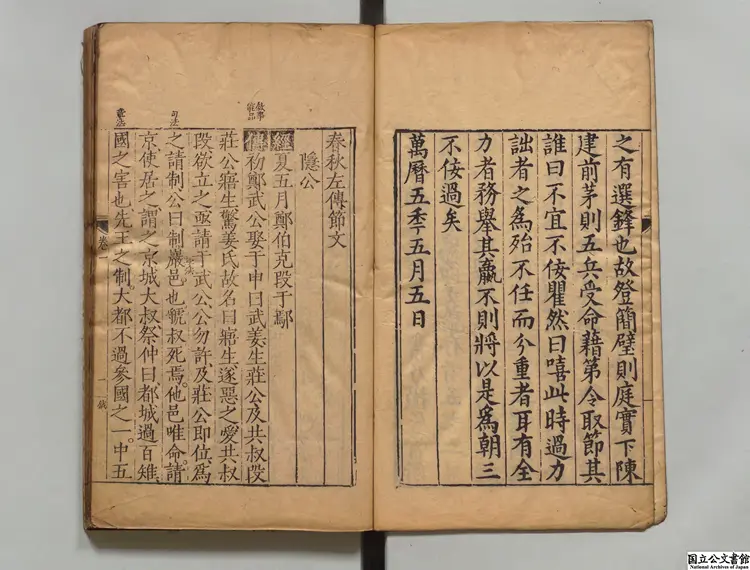 之有選鋒也故登簡璧則庭實下陳
建前茅則五兵受命藉第令取節其
誰曰不宜不佞瞿然曰嘻此時過力
詘者之為殆不任而兮重者耳有全
力者務舉其羸不則將以是為朝三
不佞過矣
萬曆五季五月五日
春秋左傳節文
隱公
經夏五月鄭伯克段于鄢
敘事
能品
傳初鄭武公娶于申曰武姜生莊公及共叔段
莊公寤生驚姜氏故名曰寤生遂惡之愛共叔
段欲立之亟請于武公公勿許及莊公即位為
句法
之請制公曰制巖邑也虢叔死焉他邑唯命請
京使居之謂之京城大叔祭仲曰都城過百雉
章法
國之害也先王之制大都不過參國之一中五
卷一
一
國立公文書館
National Archives of Japan